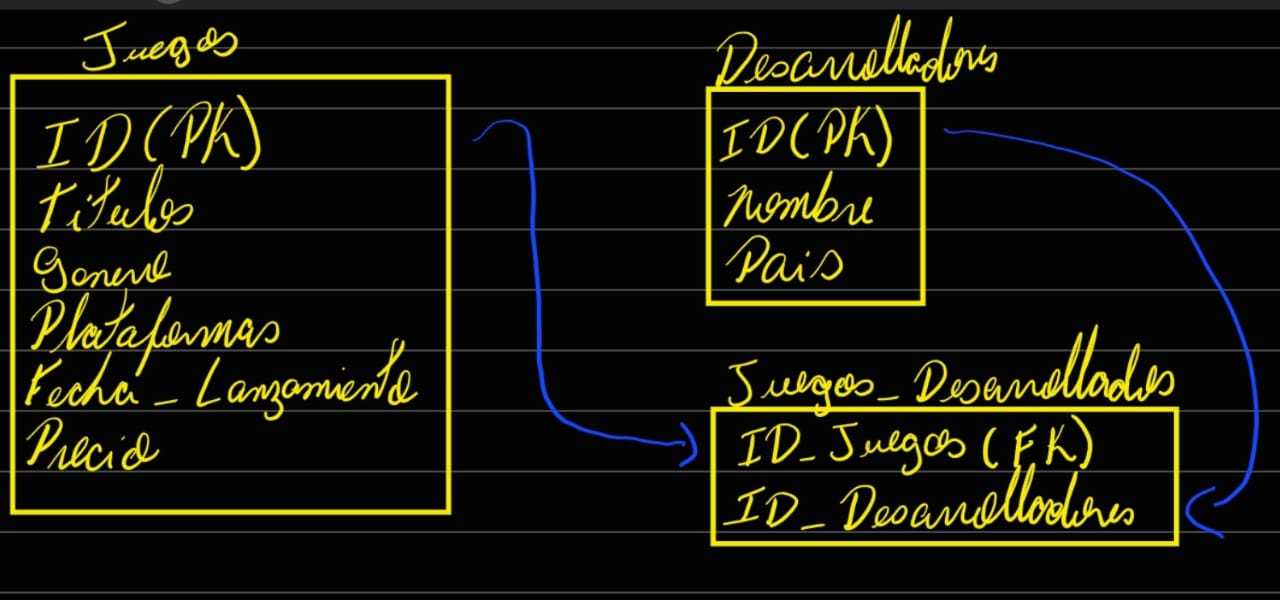 Juegos
ID(PK)
Titulos
Genero
Plataformas
Fecha_Lanzamiento
Precio
Desarrolladores
ID(PK)
Nombre
Pais
Juegos_Desarrollados
ID_Juegos (FK)
ID_Desarrolladores